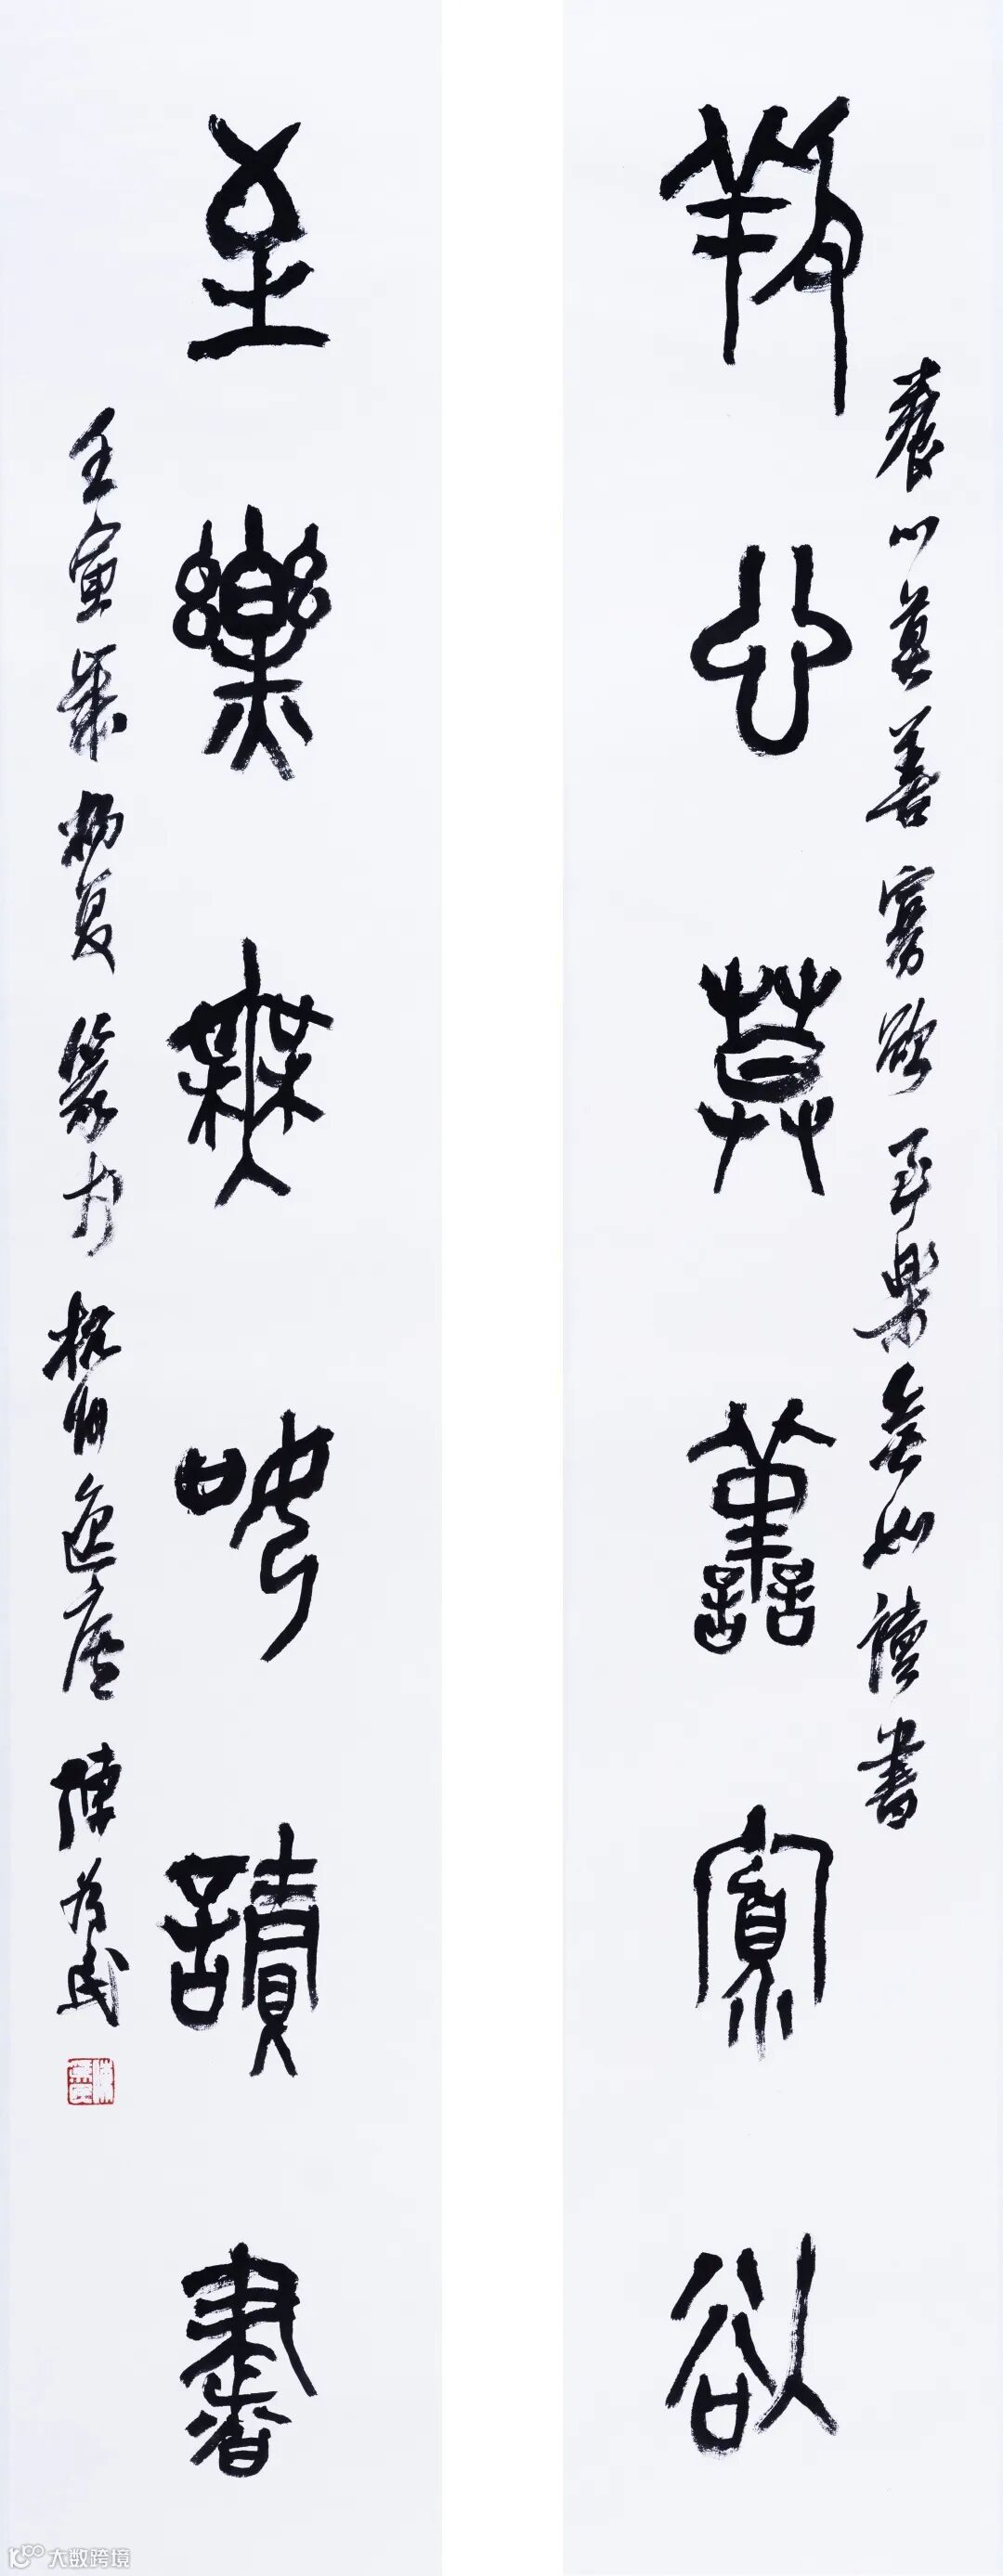 養心莫善寡欲
養心莫善寡欲至樂無如讀書
至樂無如讀書
壬寅歲初夏篆於杭州逸 陳為民
大数跨境